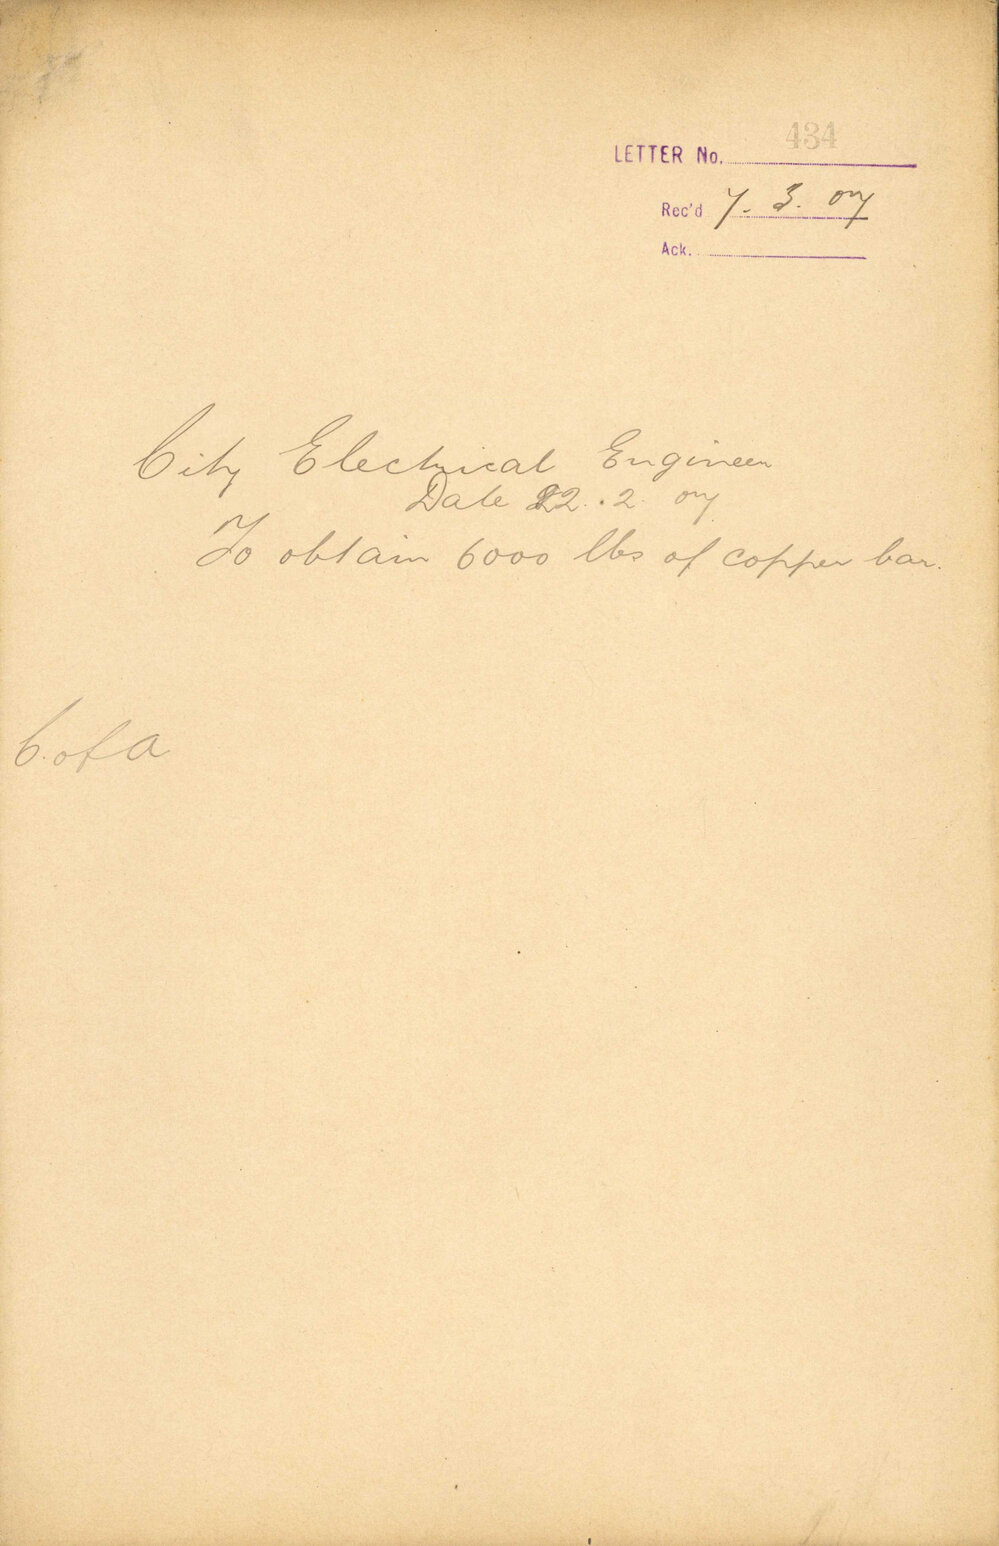 434
LETTER No.
Rec'd 7. 3. 07
Ack.
City Electrical Engineer
Date 22.2 07
To obtain 6000 lbs of copper bar.
C. of A